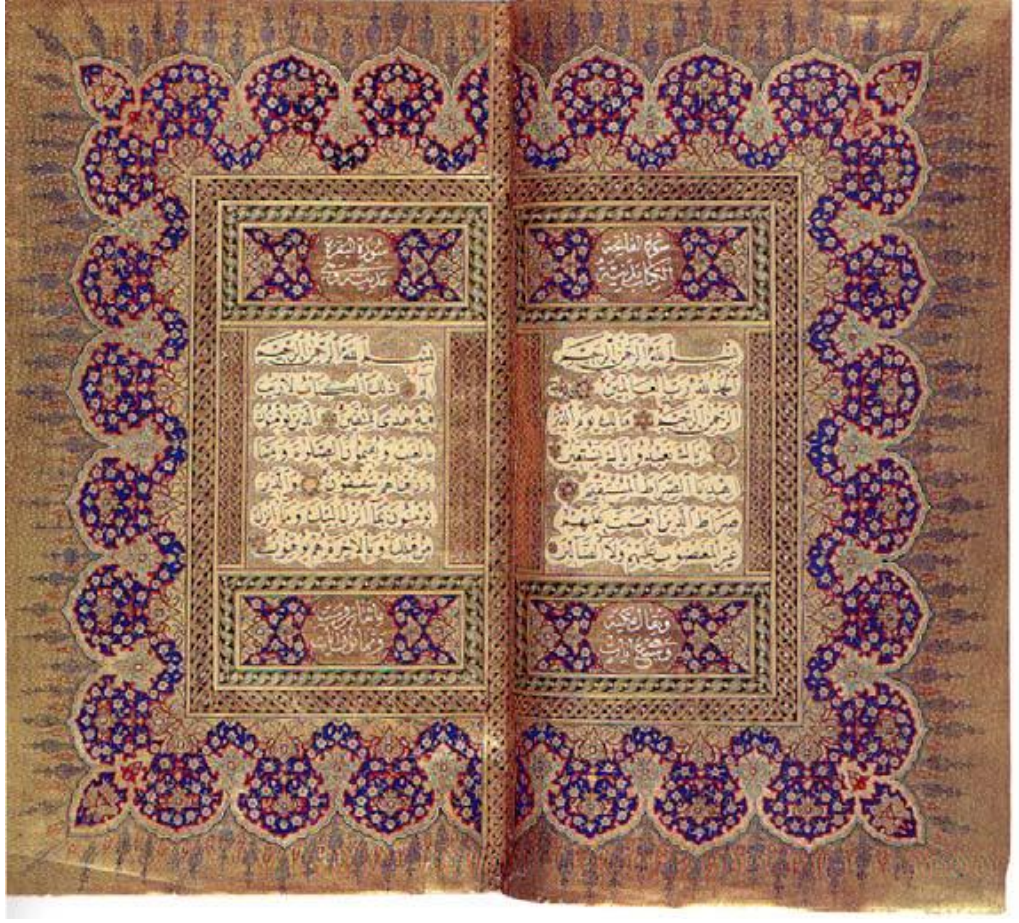 سورة الفاتحة
الكتاب مدنية
بسم الله الرحمن الرحيم
الحمد لله رب العالمين
الرحمن الرحيم مالك يوم الدين
اياك نعبد واياك نستعين
اهدنا الصراط المستقيم
صراط الذين انعمت عليهم
غير المغضوب عليهم ولا الضالين
ويقال مكية
سبع آيات
سورة البقرة
مدنية وهي
بسم الله الرحمن الرحيم
الم ذلك الكتاب لا ريب
فيه هدى للمتقين الذين يؤمنون
بالغيب ويقيمون الصلوة ومما
رزقناهم ينفقون والذين
يؤمنون بما انزل اليك وما انزل
من قبلك وبالاخرة هم يوقنون
وثمانون آية